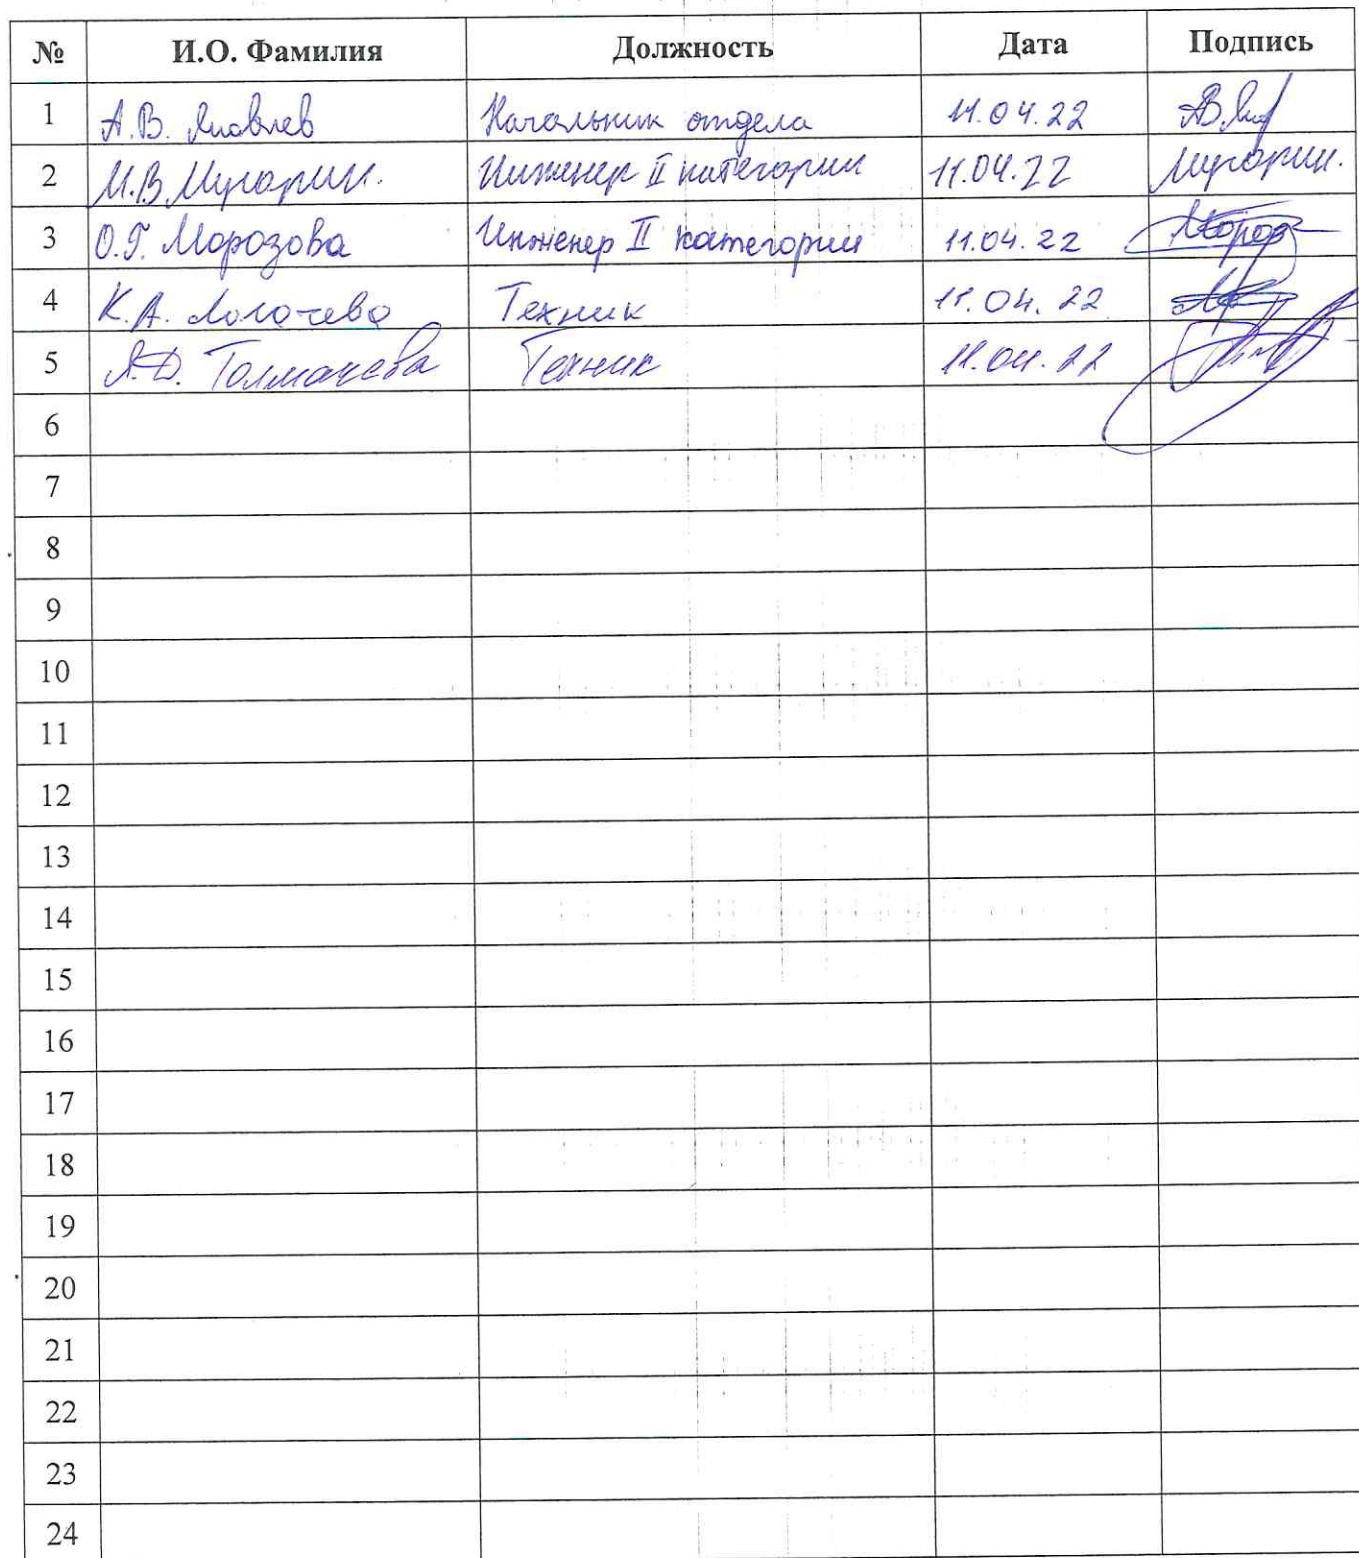 № И.О. Фамилия Должность Дата Подпись
1 А.В. Яковлев Начальник отдела 11.04.22
2 М.В. Мугарин. Инженер II категории 11.04.22 Мугарин.
3 О.Г. Морозова Инженер II категории 11.04.22
4 К.А. Логачева Техник 11.04.22
5 Я.Д. Толмачева Техник 11.04.22
6
7
8
9
10
11
12
13
14
15
16
17
18
19
20
21
22
23
24